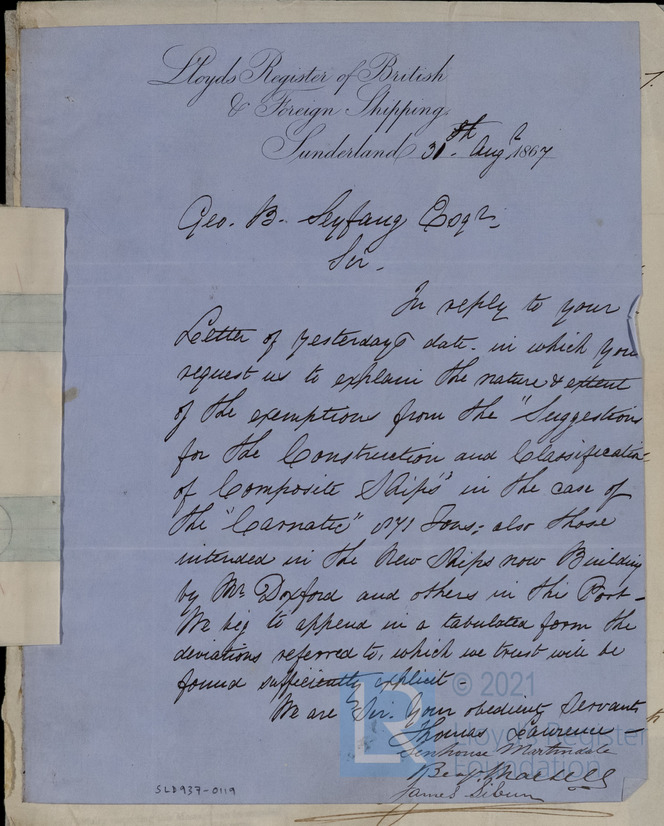 Lloyds Register of British
& Foreign Shipping,
Sunderland 31st. Augt. 1867
Geo. B. Seyfang Esqr.
Sir.
In reply to your
Letter of yesterdays date. in which you
request us to explain the nature & extent
of the exemptions from the "Suggestions
for the Construction and Classification
of Composite Ships" in the case of
the "Carnatic" 871 Tons; also those
intended in the New Ships now Building
by Mr. Doxford and others in this Port -
We beg to append in a tabulated form the
deviations referred to, which we trust will be
found sufficiently explicit
We are Sir. Your obedient Servants
Thomas Lawrence
Martindale
James Sibun
SLD937-0119
LR
© 2021
Lloyd's Register
Foundation